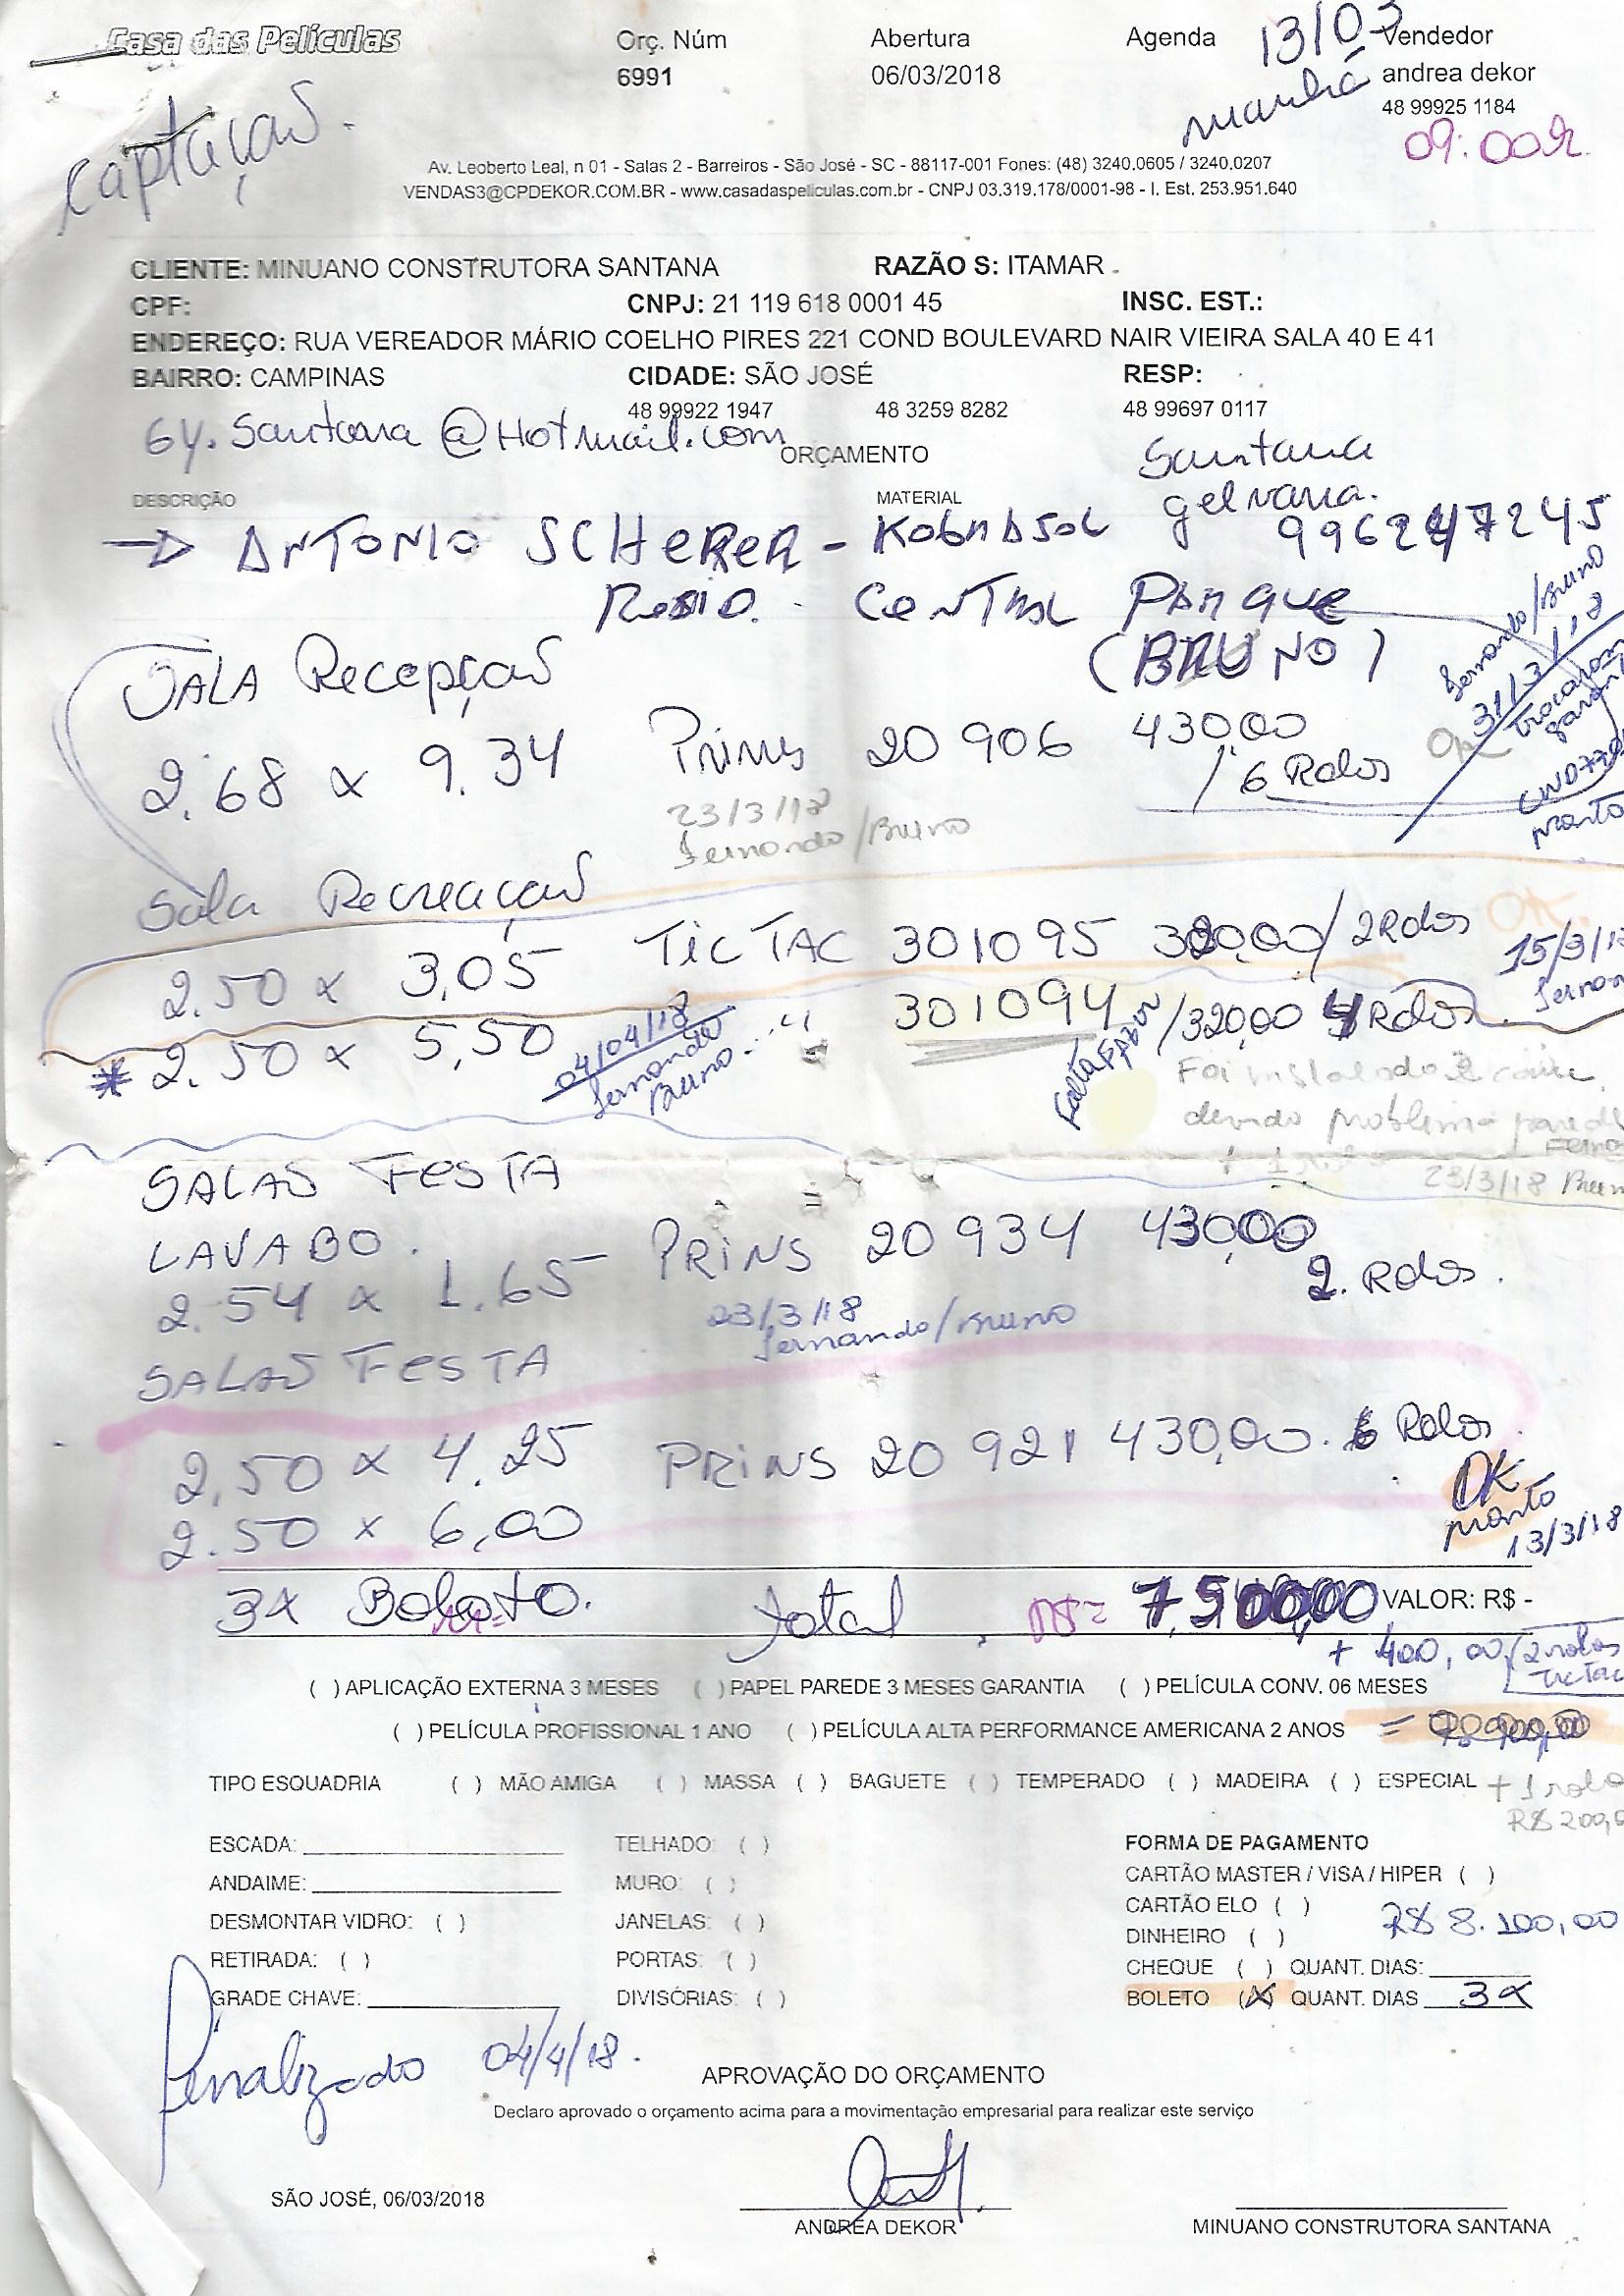 Casa das Películas Orç. Núm Abertura Agenda 13/03 Vendedor
6991 06/03/2018 manhã andrea dekor
48 99925 1184
captação. 09:00h
Av. Leoberto Leal, n 01 - Salas 2 - Barreiros - São José - SC - 88117-001 Fones: (48) 3240.0605 / 3240.0207
VENDAS3@CPDEKOR.COM.BR - www.casadaspeliculas.com.br - CNPJ 03.319.178/0001-98 - I. Est. 253.951.640
CLIENTE: MINUANO CONSTRUTORA SANTANA RAZÃO S: ITAMAR
CPF: CNPJ: 21 119 618 0001 45 INSC. EST.:
ENDEREÇO: RUA VEREADOR MÁRIO COELHO PIRES 221 COND BOULEVARD NAIR VIEIRA SALA 40 E 41
BAIRRO: CAMPINAS CIDADE: SÃO JOSÉ RESP:
48 99922 1947 48 3259 8282 48 99697 0117
gy.santana@Hotmail.com
ORÇAMENTO Santana
DESCRIÇÃO MATERIAL gelvana.
→ ANTONIO SCHERER - KOBRASOL 996247245
Resid. Central Parque
(BRUNO)
SALA Recepção
2.68 x 9.34 Prins 20 906 430,00
/ 6 Rolos OK
Fernando/Bruno
31/3/18
trocaram
pronto
23/3/18
Fernando/Bruno
Sala Recreação
2.50 x 3,05 TIC TAC 301095 320,00/ 2 Rolos OK.
15/3/18
* 2.50 x 5,50 " 301094 /320,00 4 Rolos
04/04/18
Fernando
Bruno
Falta FAZER
Foi instalado 2
devido problema parede
23/3/18 Bruno
SALÃO FESTA
LAVABO.
2.54 x 1.65 PRINS 20 934 430,00
2. Rolos.
23/3/18
Fernando/Bruno
SALÃO FESTA
2,50 x 4.25 PRINS 20 921 430,00. 6 Rolos.
2.50 x 6,00
OK
pronto
13/3/18
3x Boleto. total NF= 7,500,00 VALOR: R$ -
+ 400,00/2 rolos
Tic Tac
( ) APLICAÇÃO EXTERNA 3 MESES ( ) PAPEL PAREDE 3 MESES GARANTIA ( ) PELÍCULA CONV. 06 MESES
( ) PELÍCULA PROFISSIONAL 1 ANO ( ) PELÍCULA ALTA PERFORMANCE AMERICANA 2 ANOS =
TIPO ESQUADRIA ( ) MÃO AMIGA ( ) MASSA ( ) BAGUETE ( ) TEMPERADO ( ) MADEIRA ( ) ESPECIAL + 1 rolo
R$ 200,0
ESCADA: TELHADO: ( ) FORMA DE PAGAMENTO
ANDAIME: MURO: ( ) CARTÃO MASTER / VISA / HIPER ( )
DESMONTAR VIDRO: ( ) JANELAS: ( ) CARTÃO ELO ( ) R$ 8.100,00
DINHEIRO ( )
RETIRADA: ( ) PORTAS: ( ) CHEQUE ( ) QUANT. DIAS:
GRADE CHAVE: DIVISÓRIAS: ( ) BOLETO (X) QUANT. DIAS 3x
Finalizado 04/4/18.
APROVAÇÃO DO ORÇAMENTO
Declaro aprovado o orçamento acima para a movimentação empresarial para realizar este serviço
SÃO JOSÉ, 06/03/2018
ANDREA DEKOR MINUANO CONSTRUTORA SANTANA